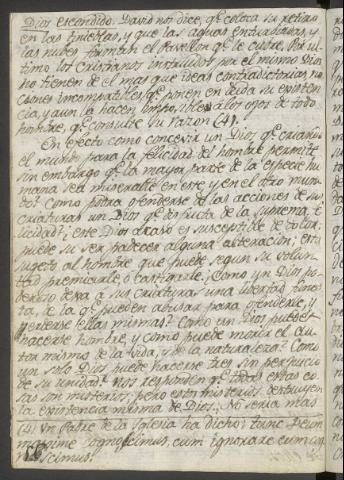 Dios escondido. David nos dice, qe. coloca su retiro
en las tinieblas, y que las aguas entupidoras, y
las nubes forman el Pavellon qe. le cubre. Por ul-
timo los Cristianos instruidos por el mismo Dios
no tienen de el mas que ideas contradictorias, no-
ciones incompatibles qe. ponen en duda su existen-
cia, y aun la hacen imposible a los ojos de todo
hombre, qe. consulte su razon (4).
En efecto como concevir un Dios qe. criando
el mundo para la felicidad del hombre permite
sin embargo qe. la mayor parte de la especie hu-
mana sea miserable en este, y en el otro mun-
do? Como podra ofenderse de las acciones de sus
criaturas un Dios qe. disfruta de la suprema fe-
licidad? ¿este Dios acaso es susceptible de dolor:
puede su ser padecer alguna alteracion; esta
sugeto al hombre que puede segun su volun-
tad premiarle, o castigarle? ¿Como un Dios po-
deroso dexa a sus criaturas una libertad funes-
ta, de la qe. pueden abusar para ofenderle, y
perderse ellas mismas? Como un Dios puede
hacerse hombre, y como puede morir el Au-
tor mismo de la vida, y de la naturaleza? Como
un solo Dios puede hacerse tres sin perjuicio
de su unidad? Nos responden qe. todas estas co-
sas son misterios; pero estos misterios destruyen
la existencia misma de Dios. No seria mas
(4) Un Padre de la Iglesia ha dicho: tunc Deum
maxime cognoscimus, cum ignorare eum cog-
noscimus.